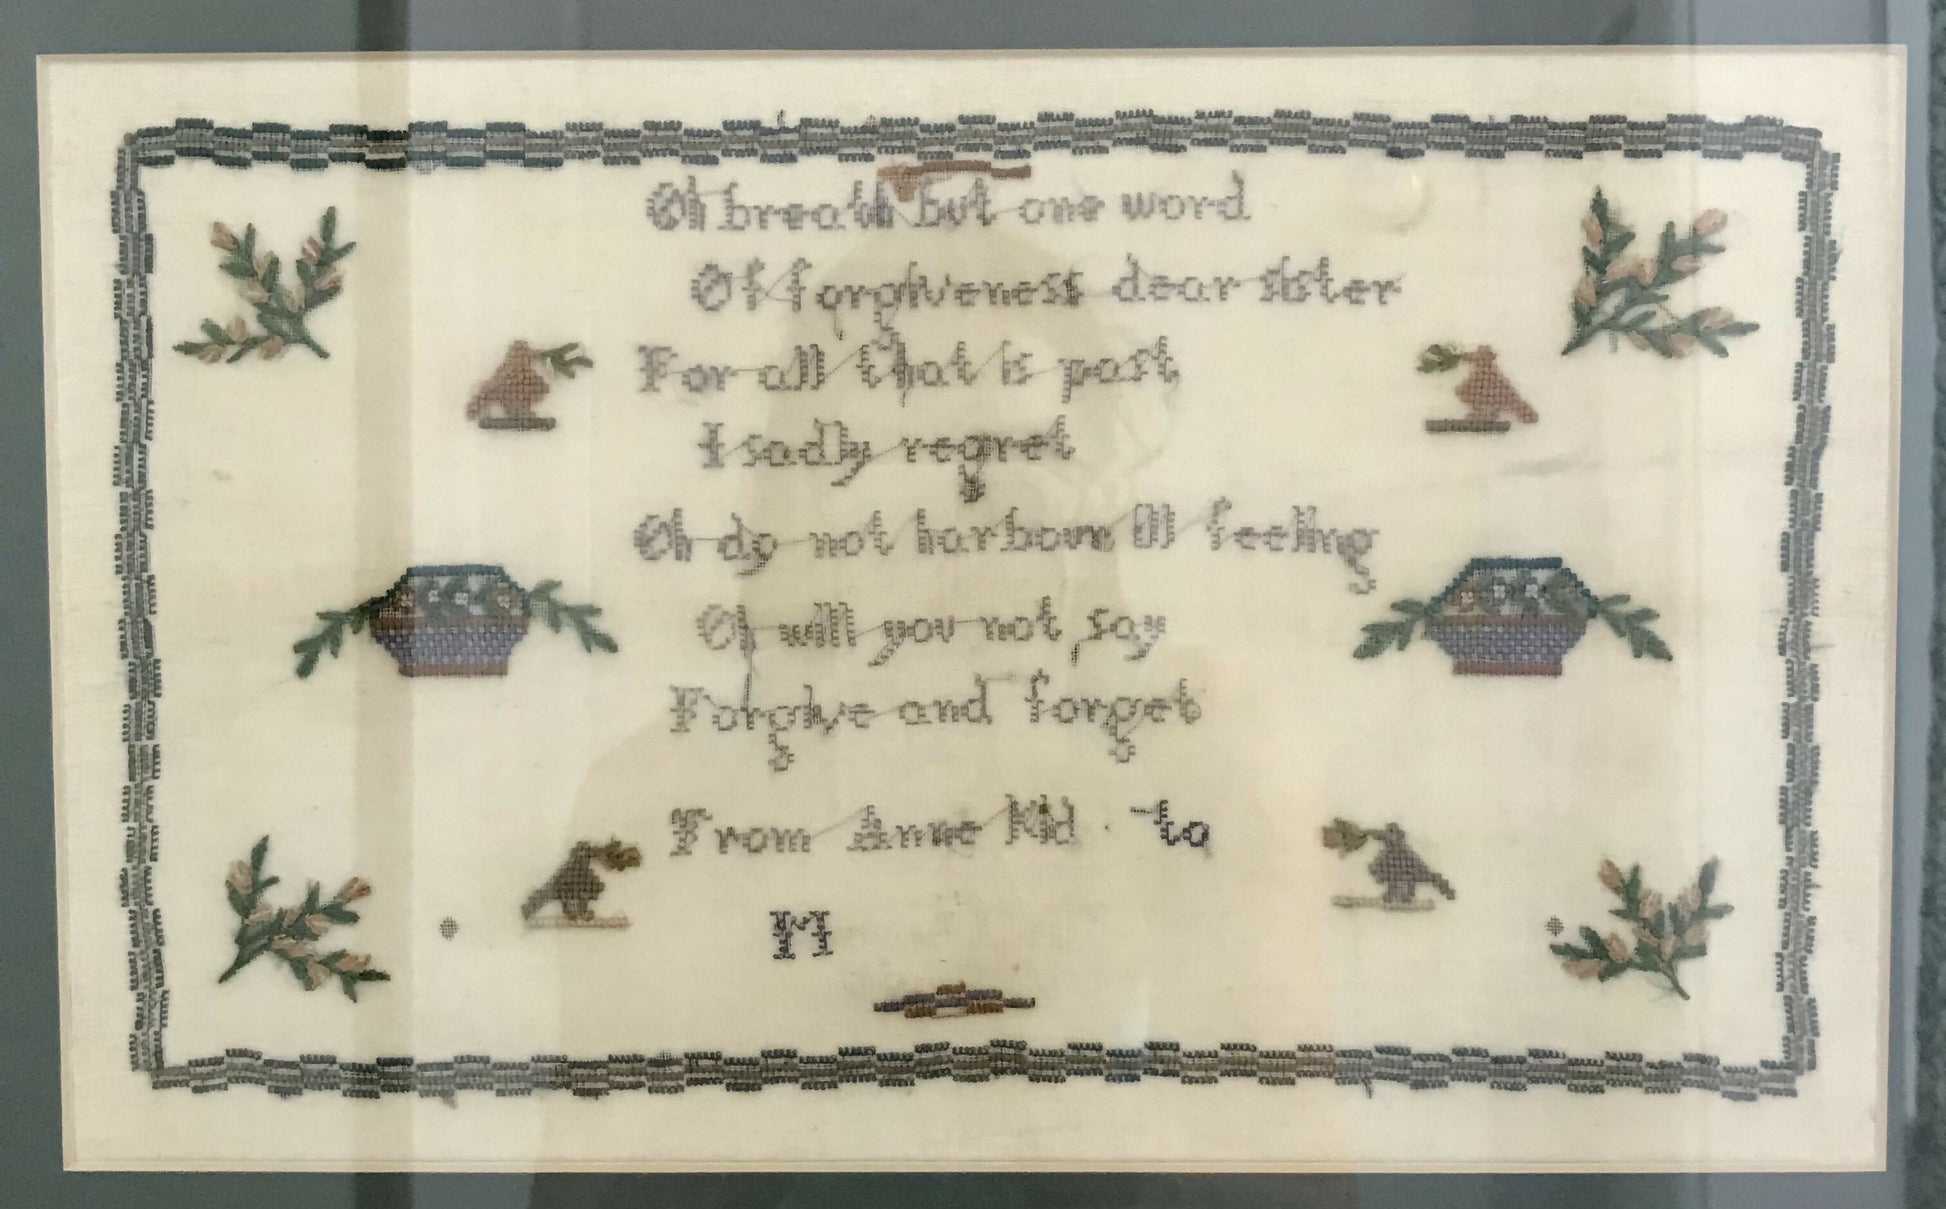 Oh breath but one word
Of forgiveness dear sister
For all that is past
I sadly regret
Oh do not harbour ill feeling
Oh will you not say
Forgive and forget
From Anne Kid to
M